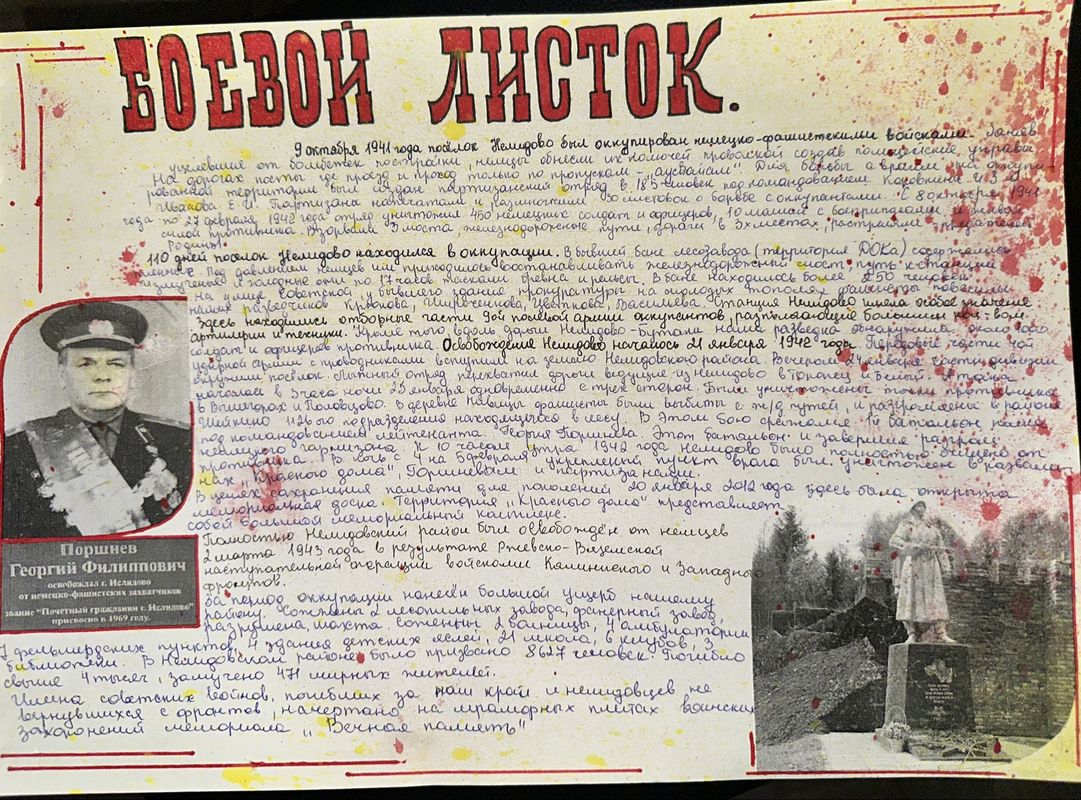 БОЕВОЙ ЛИСТОК.
9 октября 1941 года посёлок Нелидово был оккупирован немецко-фашистскими войсками. Заняв
уцелевшие от бомбежек постройки, немцы обнесли их колючей проволокой создав полицейские управы
На дорогах посты где проезд и проход только по пропускам - "аусвайсам". Для борьбы с врагом на оккупи-
рованной территории был создан партизанский отряд в 185 человек под командованием
Иванова Е.И. Партизаны напечатали и размножили листовок о борьбе с оккупантами. С 8 октября 1941
года по 27 февраля 1942 года отряд уничтожил 450 немецких солдат и офицеров, 10 машин с боеприпасами и живой
силой противника. Взорвали 3 моста, железнодорожные пути, дороги в 3х местах, расстреляли предателей
Родины.
110 дней поселок Нелидово находился в оккупации. В бывшей бане лесозавода (территория ДОКа) содержались
пленные. Под давлением немцев им приходилось восстанавливать железнодорожный мост путь к станции
измученные и голодные они по 17 часов таскали бревна и рельсы, в бане находилось более 250 человек.
На улице Советской у бывшего здания прокуратуры на молодых тополях фашисты повесили
наших разведчиков Васильева. Станция Нелидово имела особое значение
Здесь находились отборные части 9ой полевой армии оккупантов, располагающие большим кол-вом
артиллерии и техники. Кроме того, вдоль дороги Нелидово- наша разведка обнаружила около
солдат и офицеров противника. Освобождение Нелидово началось 21 января 1942 года. Передовые части 4ой
ударной армии с проводниками вступили на землю Нелидовского района. Вечером 24 января части дивизии
окружили посёлок. Лыжный отряд перехватил дороги ведущие из Нелидово в Торопец и Белый. Атака
началась в 3 часа ночи 25 января одновременно с трёх сторон. Были уничтожены противника
в и Половцово. В деревне фашисты были выбиты с ж/д путей, и разгромлены в районе
подразделения находящихся в лесу. В этом бою сражался батальон
под командованием лейтенанта Георгия Поршнева. Этот батальон и завершил разгром
немецкого гарнизона. К 10 часам утра 1942 года Нелидово было полностью очищено от
противника. В ночь с 4 на 5 февраля укрепленный пункт врага был уничтожен в развали-
нах "Красного дома", Поршневым и партизанами.
В целях сохранения памяти для поколений 20 января 2012 года здесь была открыта
мемориальная доска. Территория "Красного дома" представляет
собой большой мемориальный комплекс.
Полностью Нелидовский район был освобождён от немцев
2 марта 1943 года в результате Ржевско-Вяземской
наступательной операции войсками Калининского и Западного
фронтов.
За период оккупации нанесён большой ущерб нашему
району. Сожжены 2 лесопильных завода, фанерный завод,
разрушена шахта. Сожжены 2 больницы, 4 амбулатории
7 фельдшерских пунктов, 4 здания детских яслей, 21 школа, 6 клубов, 3
библиотеки. В Нелидовском районе было призвано 8627 человек. Погибло
свыше 4 тысяч, замучено 471 мирных жителей.
Имена советских войнов, погибших за наш край и нелидовцев не
вернувшихся с фронтов, начертано на мраморных плитах воинских
захоронений мемориала "Вечная память"
Поршнев
Георгий Филиппович
освобождал г. Нелидово
от немецко-фашистских захватчиков
звание "Почетный гражданин г. Нелидово"
присвоено в 1969 году.